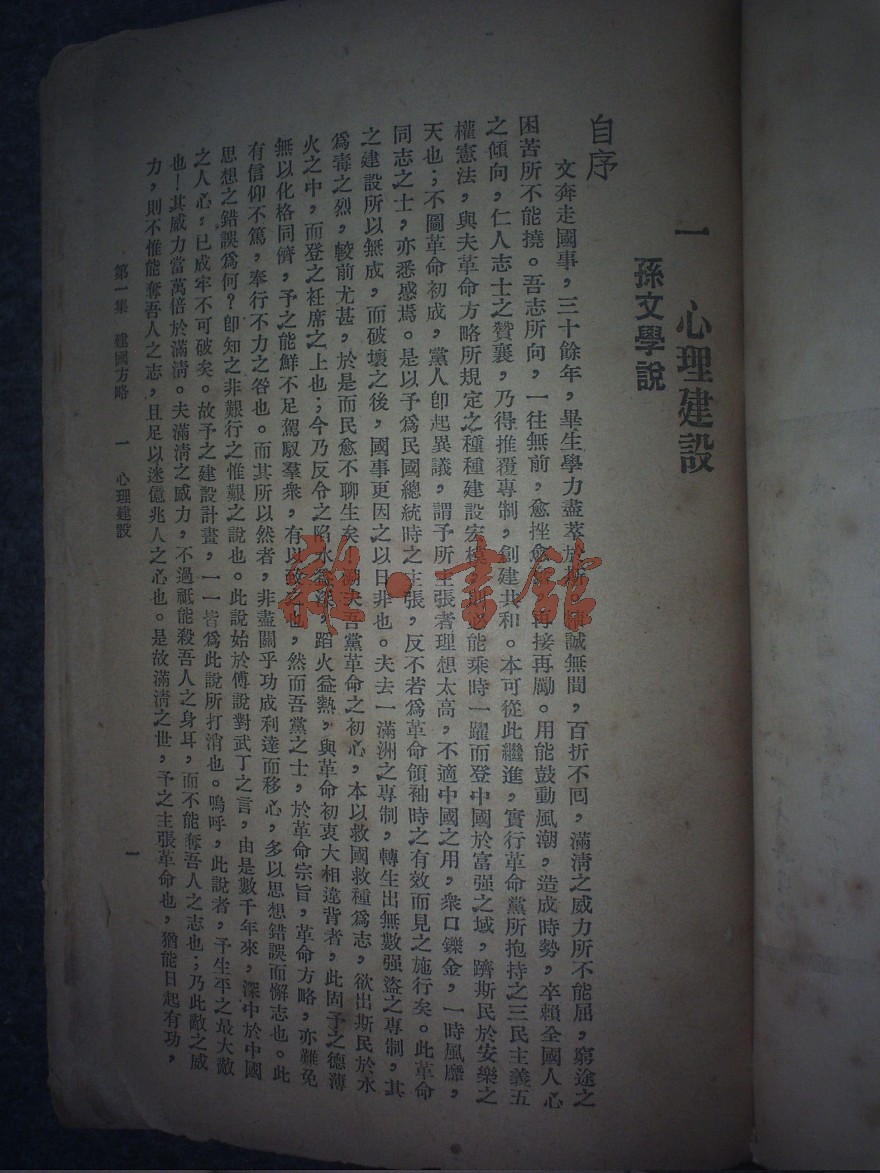 一　心理建設
孫文學說
自序
文奔走國事，三十餘年，畢生學力盡萃於斯，誠無間，百折不囘，滿淸之威力所不能屈，窮途之
困苦所不能撓。吾志所向，一往無前，愈挫愈再接再勵。用能鼓動風潮，造成時勢，卒賴全國人心
之傾向，仁人志士之贊襄，乃得推覆專制，創建共和。本可從此繼進，實行革命黨所抱持之三民主義五
權憲法，與夫革命方略所規定之種種建設宏模，能乘時一躍而登中國於富强之域，躋斯民於安樂之
天也；不圖革命初成，黨人卽起異議，謂予所主張者理想太高，不適中國之用，衆口鑠金，一時風靡，
同志之士，亦悉惑焉。是以予爲民國總統時之主張，反不若爲革命領袖時之有效而見之施行矣。此革命
之建設所以無成，而破壞之後，國事更因之以日非也。夫去一滿洲之專制，轉生出無數强盜之專制，其
爲毒之烈，較前尤甚，於是而民愈不聊生矣！溯夫吾黨革命之初心，本以救國救種爲志，欲出斯民於水
火之中，而登之袵席之上也；今乃反令之陷水益深，蹈火益熱，與革命初衷大相違背者，此固予之德薄
無以化格同儕，予之能鮮不足駕馭羣衆，有以致之也，然而吾黨之士，於革命宗旨，革命方略，亦難免
有信仰不篤，奉行不力之咎也。而其所以然者，非盡關乎功成利達而移心，多以思想錯誤而懈志也。此
思想之錯誤爲何？卽知之非艱行之惟艱之說也。此說始於傅說對武丁之言，由是數千年來，深中於中國
之人心，已成牢不可破矣。故予之建設計畫，一一皆爲此說所打消也。嗚呼，此說者，予生平之最大敵
也！其威力當萬倍於滿淸。夫滿淸之威力，不過祗能殺吾人之身耳，而不能奪吾人之志也；乃此敵之威
力，則不惟能奪吾人之志，且足以迷億兆人之心也。是故滿淸之世，予之主張革命也，猶能日起有功，
第一集　建國方略　一　心理建設　一
雜·書館